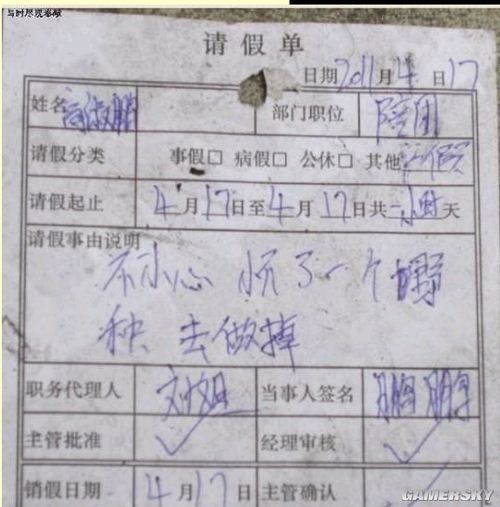 请假单
日期 2011 4 日 17
姓名 部门职位 陪团
请假分类 事假□ 病假□ 公休□ 其他
请假起止 4月17日至4月17日共一小时天
请假事由说明
不小心 怀了一个
种 去做掉
职务代理人 当事人签名
主管批准 ✓ 经理审核 ✓
销假日期 4月17日 主管确认
GAMERSKY